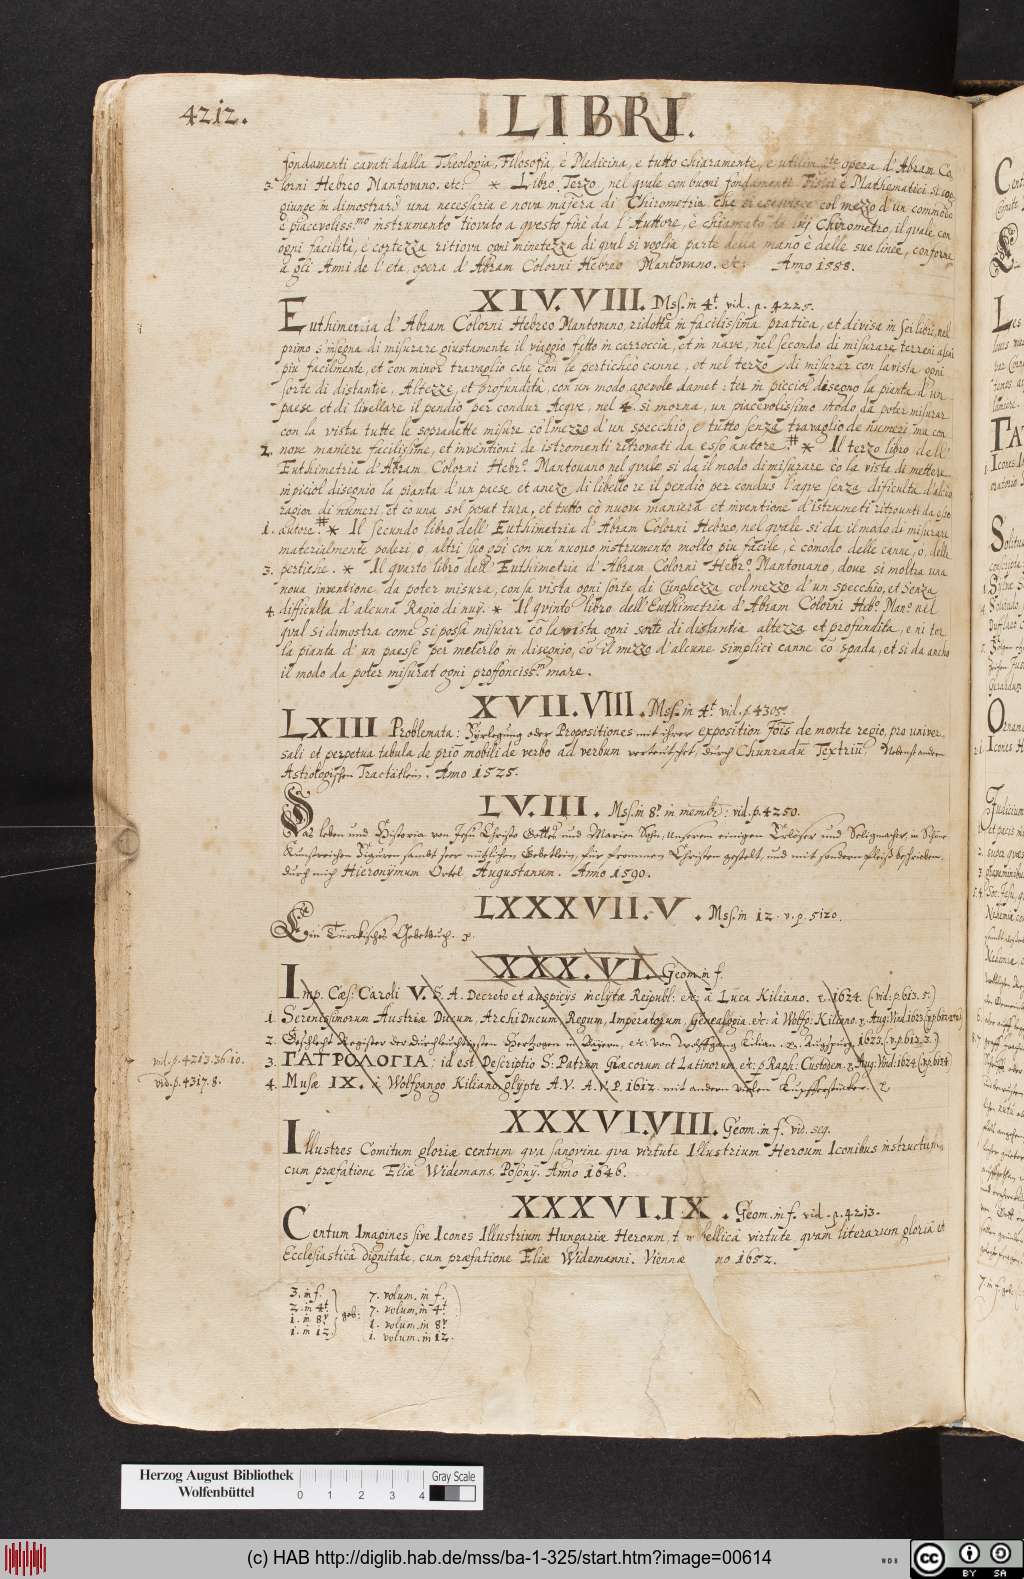 4212.
LIBRI.
fondamenti cavati dalla Theologia, Filosofia, è Medicina, e tutto chiaramente, e utiliss opera d'Abram Co-
3. lorni Hebreo Mantovano. etc. * Libro Terzo, nel quale con buoni fondamenti Fisici è Mathematici si sog-
giunge in dimostrar una necessaria e nova maniera di Chirometria che si eseguisce col mezzo d'un commodo
è piacevoliss.mo instrumento trovato a questo fine da l'Auttore, è chiamato da lui Chirometro, il quale con
ogni facilità, è certezza ritrova ogni minutezza di qual si voglia parte della mano è delle sue linee, conforme
a gli Anni de l'età, opera d'Abram Colorni Hebreo Mantovano. etc: Anno 1588.
XIV.VIII. Mss. in 4t. vid. p. 4225.
Euthimetria d'Abram Colorni Hebreo Mantovano, ridotta in facilissima pratica, et divisa in sei libri, nel
primo s'insegna di misurare giustamente il viaggio fatto in carroccia, et in nave, nel secondo di misurare terreni assai
più facilmente, et con minor travaglio che con le pertiche ò canne, et nel terzo di misurar con la vista ogni
sorte di distantie, Altezze, et profundità, con un modo agevole da metter in picciol disegno la pianta d'un
paese et di livellare il pendio per condur Acque, nel 4. si morna, un piacevolissimo modo da poter misurar
con la vista tutte le sopradette misure col mezzo d'un specchio, e tutto senza travaglio de numeri ma con
2. nove maniere facilissime, et inventioni de istromenti ritrovati da esso autore. # * Il terzo libro dell'
Euthimetria d'Abram Colorni Hebr. Mantovano nel quale si da il modo di misurare co la vista di mettere
in piciol disegnio la pianta d'un paese et anezo di libellore il pendio per condus l'aque senza dificulta d'alcuna
ragion di numeri, et co una sol posatura, et tutto cō nuova maniera et inventione d'istrumeti ritrouuti da esso
1. autore. # * Il secundo libro dell'Euthimetria d'Abram Colorni Hebreo, nel quale si da il modo di misurare
materialmente poderi, o altri suochi con un nuouo instrumento molto piu facile, è còmodo delle canne, ò, delle
3. pertiche. * Il quarto libro dell'Euthimetria d'Abram Colorni Hebr. Mantouano, doue si mostra una
noua inventione da poter misura, con la vista ogni sorte di Lunghezza col mezzo d'un specchio, et Senza
4. difficulta d'alcuna Ragiō di nuij. * Il quinto libro dell'Euthimetria d'Abram Colorni Hebo. Mano. nel
qual si dimostra come si possa misurar cō la vista ogni sorte di distantia altezza et profundita, e ni ter
la pianta d'un paese per meterlo in disegnio, cō il mezzo d'alcune simplici canne cō spada, et si da ancho
il modo da poter misurat ogni profonciss.m mare.
XVII.VIII. Mss. in 4t. vid. p. 4305.
LXIII Problemata: Zerlegung oder Propositiones mit ihrer exposition Joīs de monte regio, pro univer-
sali et perpetua tabula de prio mobili de verbo ad verbum verteutschet, durch Chunradū Textriū. Nebenst andern
Astrologischen Tractätlein. Anno 1525.
LV.III. Mss. in 8r. in membr: vid. p. 4250.
Das leben und Historia von Jesu Christo Gottes und Marien Sohn, unserem einigen Erlöser und Seligmacher, in Schöne
Kunstreichen Figuren sambt seer nützlichen Gebetlein, für frommen Christen gestelt, und mit sondern fleiß beschrieben,
durch mich Hieronymum Ortel Augustanum. Anno 1590.
LXXXVII.V. Mss. in 12. v. p. 5120.
Ein Türckisches Gebetbuch. p.
XXX.VI. Geom. in f.
Imp. Cæs: Caroli V. S. A. Decreto et auspicijs inclytæ Reipubl: etc à Luca Kiliano. 2. 1624. (vid: p. 613. 5.)
1. Serenissimorum Austriæ Ducum, ArchiDucum, Regum, Imperatorum, Genealogia. etc: à Wolfg: Kiliano. Aug: Vind. 1623.
2. Geschlecht Register der Durchleüchtigsten Hertzogen in Bayern, etc: von Wolffgang Kilian. zu Augspurg. 1623. (v. p. 613. 3.)
3. ΠΑΤΡΟΛΟΓΙΑ: id est Descriptio S: Patrum Græcorum et Latinorum etc: p Raph: Custodem. Aug: Vind: 1624.
vid. p. 4213. 36. 10.
4. Musæ IX. à Wolfgango Kiliano glypte A. V. A. 1612. mit andern vielen Kupfferstücken.
vid. p. 4317. 8.
XXXVI.VIII. Geom. in f. vid. seq.
Illustres Comitum gloriæ centum qua sanguine qua virtute Illustrium Heroum Iconibus instructum,
cum præfatione Eliæ Widemans, Posony. Anno 1646.
XXXVI.IX. Geom. in f. vid. p. 4213.
Centum Imagines sive Icones Illustrium Hungariæ Heroum, t bellicâ virtute quam literarum gloriâ et
Ecclesiasticâ dignitate, cum præfatione Eliæ Widemanni. Viennæ no 1652.
3. in f.
2. in 4t.
1. in 8r.
1. in 12.
geb:
7. volum. in f.
7. volum. in 4t.
1. volum. in 8r.
1. volum. in 12.
Herzog August Bibliothek
Wolfenbüttel
0 1 2 3 4
Gray Scale
(c) HAB http://diglib.hab.de/mss/ba-1-325/start.htm?image=00614
WDB
cc BY SA